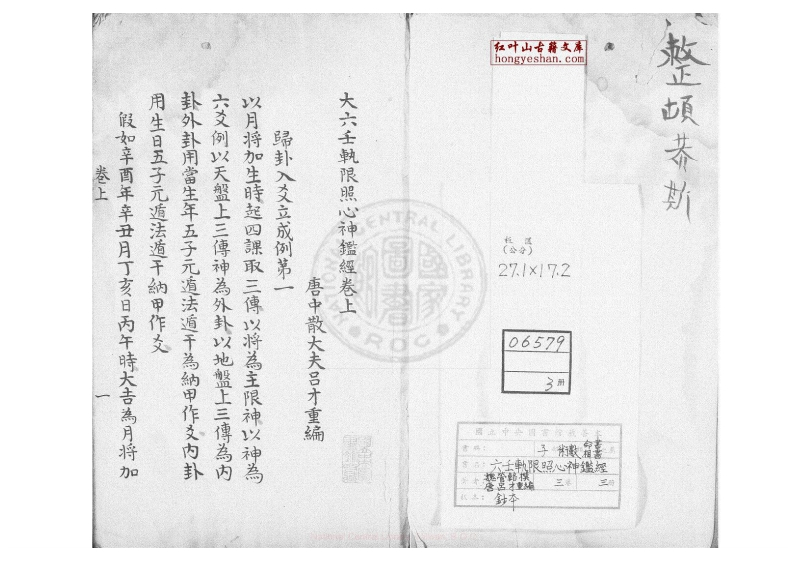 整頓恭斯
红叶山古籍文库
hongyeshan.com
版匡
(公分)
27.1×17.2
06579
3冊
子 術數
六壬軌限照心神鑑經
魏管輅撰
唐呂才重編
三 三
鈔本
大六壬軌限照心神鑑經卷上
唐中散大夫呂才重編
歸卦入爻立成例第一
以月将加生時起四課取三傳以将為主限神以神為
六爻例以天盤上三傳神為外卦以地盤上三傳為内
卦外卦用當生年五子元遁法遁干為納甲作爻内卦
用生日五子元遁法遁干納甲作爻
假如辛酉年辛丑月丁亥日丙午時大吉為月将加
卷上
一
NATIONAL CENTRAL LIBRARY
ROC
國家圖書館